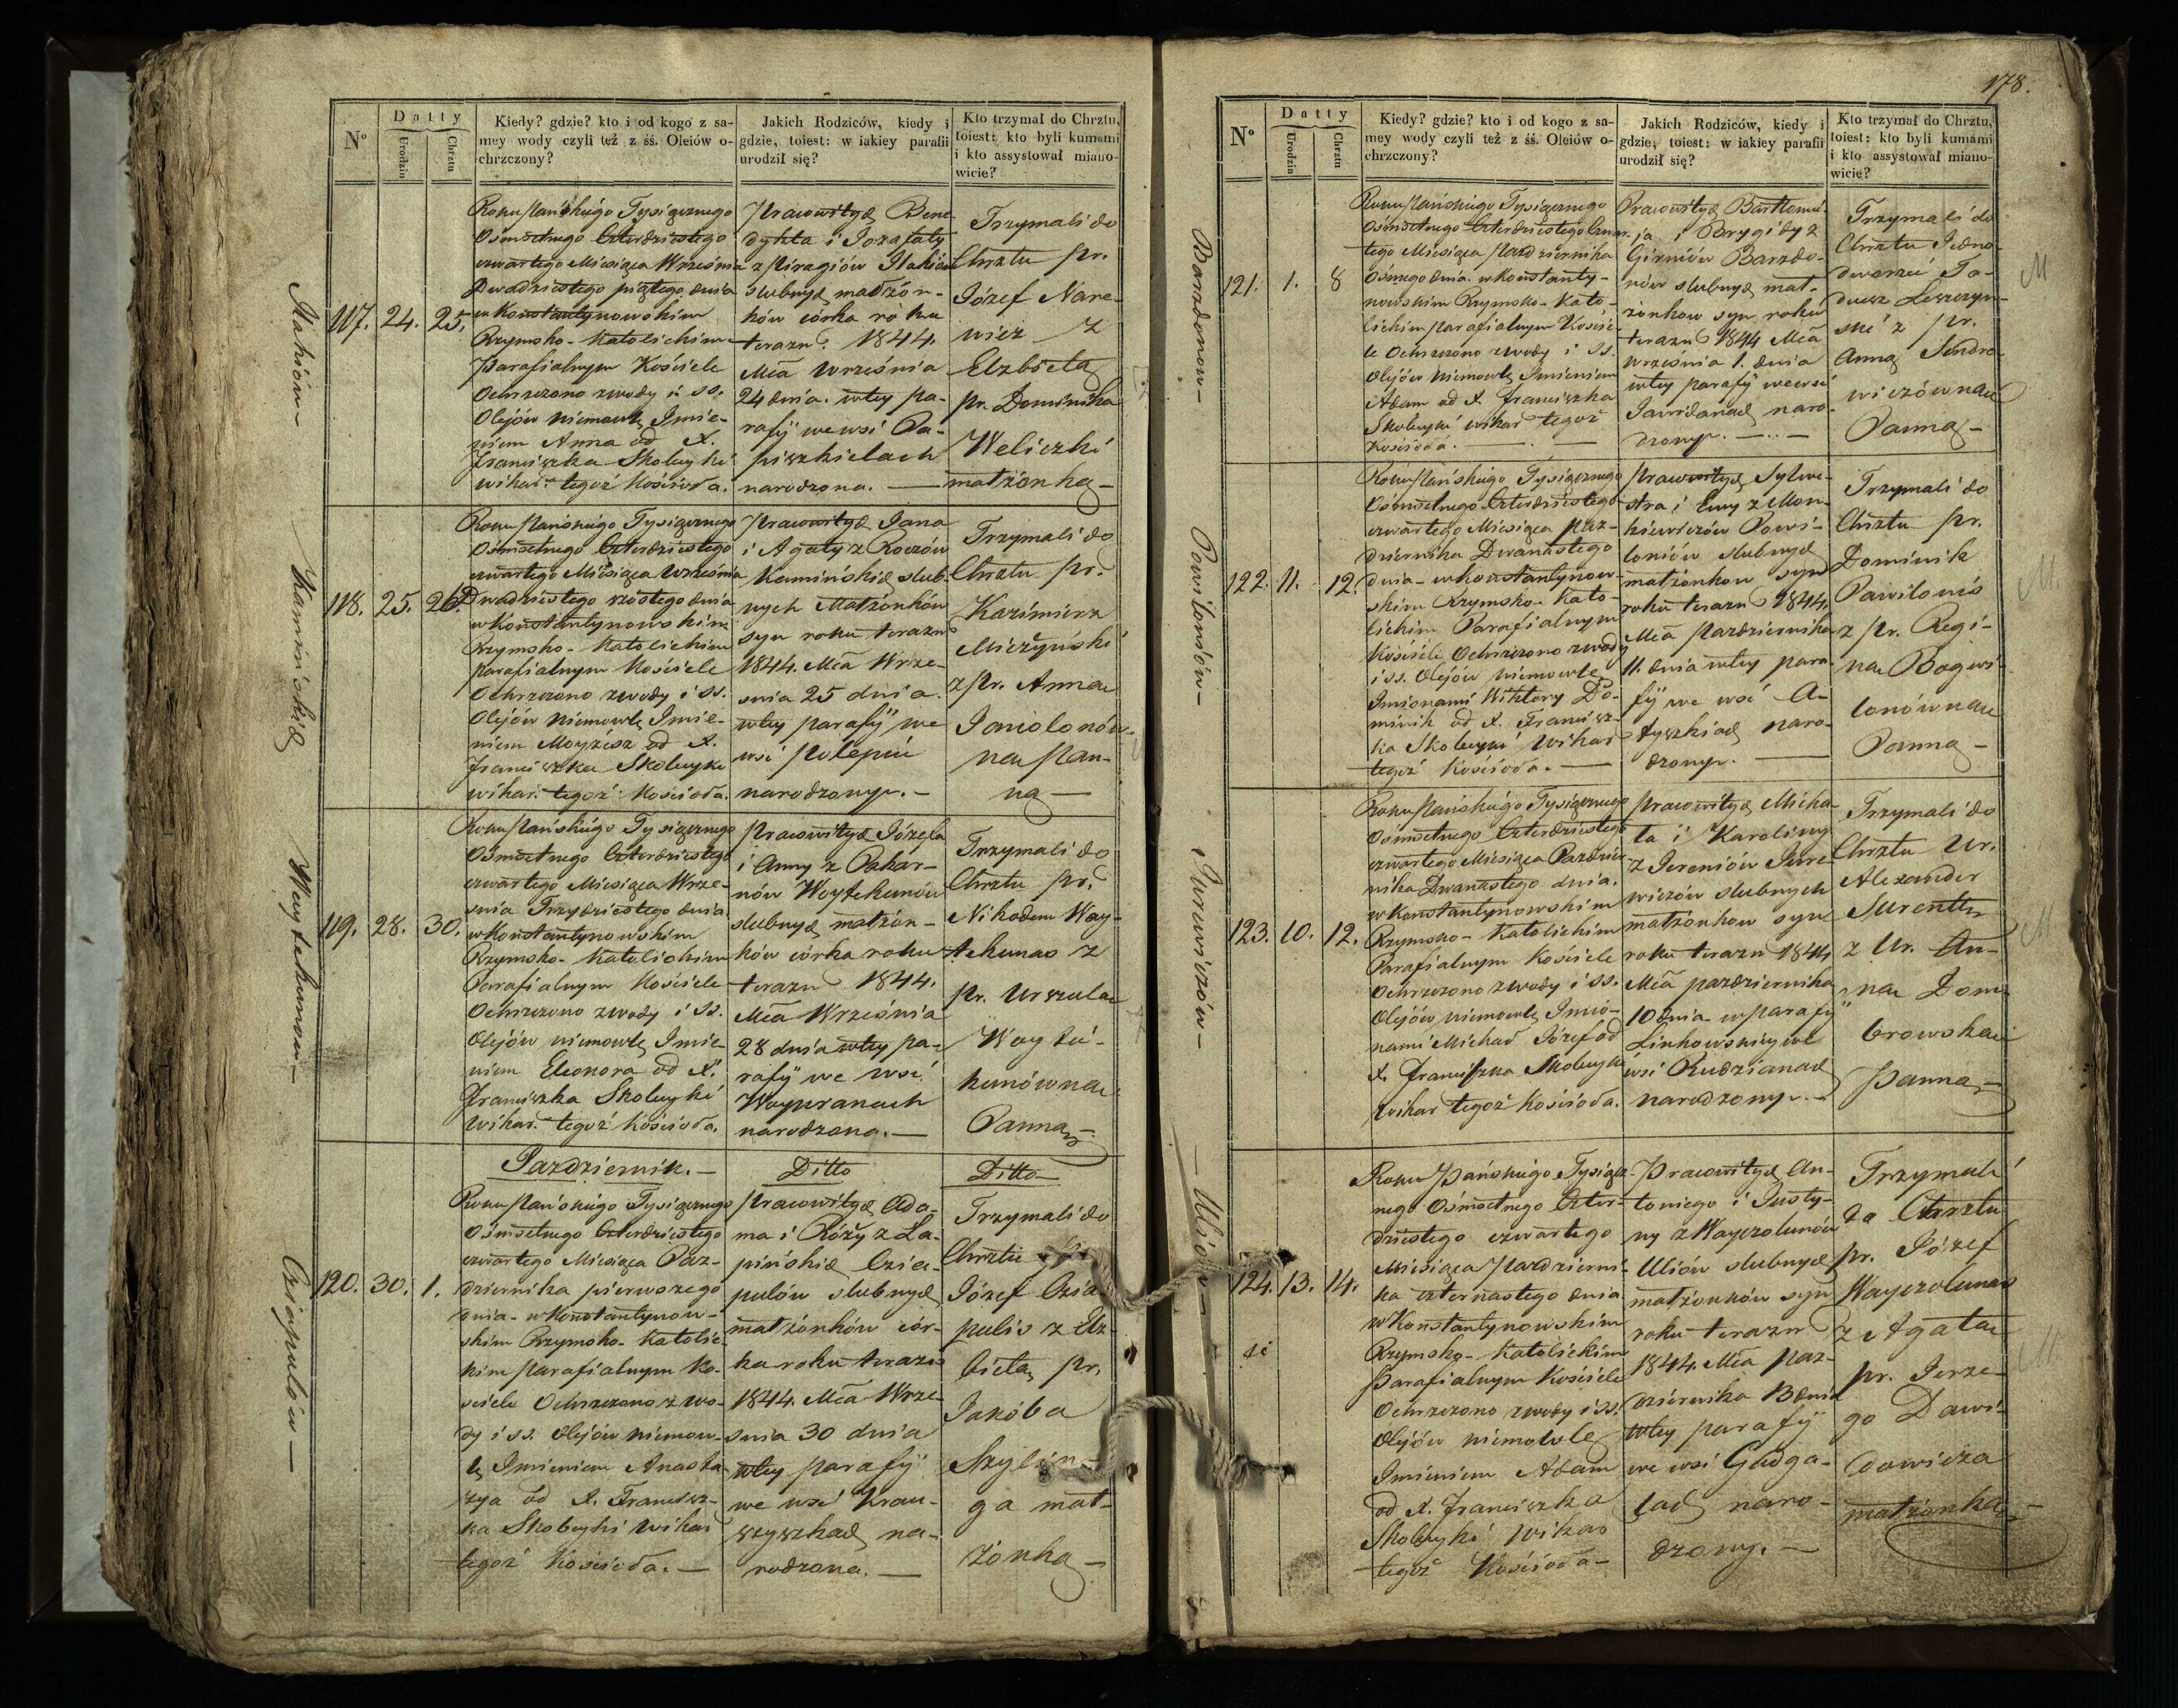 N°
Datty
Urodzin
Chrztu
Kiedy? gdzie? kto i od kogo z sa-
mey wody czyli też z śś. Oleiów o-
chrzczony?
Jakich Rodziców, kiedy i
gdzie, toiest: w iakiey parafii
urodził się?
Kto trzymał do Chrztu,
toiest: kto byli kumami
i kto assystował miano-
wicie?
117. 24. 25.
Roku Pańskiego Tysiącznego
Ośmsetnego Czterdziestego
czwartego Miesiąca Września
Dwadziestego piątego dnia
w Konstantynowskim
Rzymsko-Katolickim
Parafialnym Kościele
Ochrzczono z wody i SS.
Olejów niemowlę Imie-
niem Anna od X.
Franciszka Skobeyki
wikar. tegoż Kościoła.
Pracowitych Bene-
dykta i Jozafaty
z Piragiów
slubnych małżon-
ków córka roku
terazn. 1844.
Mca Września
24 dnia w tey pa-
rafij we wsi Pa-
piszkielach
narodzona. —
Trzymali do
Chrztu pr.
Józef Nare-
wicz z
Elzbietą
pr. Dominika
Weliczki
małżonką —
118. 25. 26.
Kamińskich
Roku Pańskiego Tysiącznego
Ośmsetnego Czterdziestego
czwartego Miesiąca Września
Dwadziestego szóstego dnia
w Konstantynowskim
Rzymsko-Katolickim
parafialnym Kościele
Ochrzczono z wody i SS.
Olejów niemowlę Imie-
niem Moyżesz od X.
Franciszka Skobeyki
wikar. tegoż Kościoła.
Pracowitych Jana
i Agaty z Roczów
Kamińskich slub-
nych Małżonków
syn roku terazn
1844. Mca Wrze-
snia 25 dnia
w tey parafij we
wsi Polepiu
narodzony. —
Trzymali do
Chrztu pr.
Kazimierz
Miczyński
z pr. Anną
na Pan-
ną —
119. 28. 30.
Woytekunow —
Roku Pańskiego Tysiącznego
Ośmsetnego Czterdziestego
czwartego Miesiąca Wrze-
snia Trzydziestego dnia
w Konstantynowskim
Rzymsko-Katolickim
Parafialnym Kościele
Ochrzczono z wody i SS.
Olejów niemowlę Imie-
niem Eleonora od X.
Franciszka Skobeyki
wikar. tegoż Kościoła.
Pracowitych Józefa
i Anny z Pakar-
nów Woytekunów
slubnych małżon-
ków córka roku
terazn 1844.
Mca Września
28 dnia w tey pa-
rafij we wsi
Woyuranach
narodzona. —
Trzymali do
Chrztu pr.
Nikodem Woy-
tekunas z
pr. Urszulą
Woyte-
kunówną
Panną —
Październik. —
Ditto
Ditto —
120. 30. 1.
Cziapulów —
Roku Pańskiego Tysiącznego
Ośmsetnego Czterdziestego
czwartego Miesiąca Paz-
dziernika pierwszego
dnia w Konstantynow-
skim Rzymsko-Katolic-
kim parafialnym Ko-
ściele Ochrzczono z wo-
dy i SS. Olejów niemow-
lę Imieniem Anasta-
zya od X. Francisz-
ka Skobeyki wikar
tegoż Kościoła. —
Pracowitych Ada-
ma i Róży z Ła-
pińskich Czia-
pulów slubnych
małżonków cór-
ka roku terazn
1844. Mca Wrze-
snia 30 dnia
w tey parafij
we wsi Krau-
szyszkach na-
rodzona. —
Trzymali do
Chrztu
Józef Czia-
pulis z Elz-
bietą pr.
Jakóba
Szylin-
ga mał-
żonką —
178.
N°
Datty
Urodzin
Chrztu
Kiedy? gdzie? kto i od kogo z sa-
mey wody czyli też z śś. Oleiów o-
chrzczony?
Jakich Rodziców, kiedy i
gdzie, toiest: w iakiey parafii
urodził się?
Kto trzymał do Chrztu,
toiest: kto byli kumami
i kto assystował miano-
wicie?
121. 1. 8
Barzdonow —
Roku Pańskiego Tysiącznego
Ośmsetnego Czterdziestego Czwar-
tego Miesiąca Pazdziernika
Ośmego dnia w Konstanty-
nowskim Rzymsko-Kato-
lickim parafialnym Koscie-
le Ochrzczono z wody i SS.
Olejów niemowlę Imieniem
Adam od X. Franciszka
Skobeyki wikar tegoż
Kościoła. —
Pracowitych Bartłomie-
ja i Brygidy z
Girniów Barzdo-
nów slubnych mał-
żonkow syn roku
terazn 1844 Mca
września 1. dnia
w tey parafij we wsi
Jawidanach naro-
dzony. —
Trzymali do
Chrztu Jedno-
dworzec Ta-
deusz Leszczyn-
ski z pr.
Anną
wiczówną
Panną —
122. 11. 12.
Pawiloniów —
Roku Pańskiego Tysiącznego
Ośmsetnego Czterdziestego
czwartego Miesiąca paz-
dziernika Dwanastego
dnia w Konstantynow-
skim Rzymsko-Kato-
lickim Parafialnym
Kościele Ochrzczono z wody
i SS. Olejów niemowlę
Imionami Wiktory Do-
minik od X. Francisz-
ka Skobeyki Wikar
tegoż Kościoła. —
Pracowitych Sylwe-
stra i Ewy z Mon-
kiewiczów Pawi-
loniów slubnych
małżonkow syn
roku terazn 1844.
Mca Pazdziernika
11. dnia w tey para-
fij we wsi A-
tyszkiach naro-
dzony. —
Trzymali do
Chrztu pr.
Dominik
Pawilonis
z pr. Regi-
ną Bogwi-
lonówną
Panną —
123. 10. 12.
Jurewiczów —
Roku Pańskiego Tysiącznego
Ośmsetnego Czterdziestego
czwartego Miesiąca Pazdzier-
nika Dwanastego dnia
w Konstantynowskim
Rzymsko-Katolickim
Parafialnym Kościele
Ochrzczono z wody i SS.
Olejów niemowlę Imio-
nami Michał Józef od
X. Franciszka Skobeyki
wikar tegoż Kościoła.
Pracowitych Micha-
ła i Karoliny
z Jereniów Jure-
wiczów slubnych
małżonkow syn
roku terazn 1844
Mca pazdziernika
10 dnia w parafij
Linkowskiey we
wsi Rudzianach
narodzony. —
Trzymali do
Chrztu Ur.
Alexander
Surentt
z Ur. An-
ną Dom-
browską
Panną —
124. 13. 14.
Uliów —
Roku Pańskiego Tysiącz-
nego Ośmsetnego Czter-
dziestego czwartego
Miesiąca Pazdzierni-
ka czternastego dnia
w Konstantynowskim
Rzymsko-Katolickim
Parafialnym Kościele
Ochrzczono z wody i SS.
Olejów niemowlę
Imieniem Adam
od X. Franciszka
Skobeyki wikar
tegoż Kościoła —
Pracowitych An-
toniego i Justy-
ny z Wayczolunów
Uliów slubnych
małżonków syn
roku terazn
1844. Mca paz-
dziernika 13 dnia
w tey parafij
we wsi Gudga-
lach naro-
dzony. —
Trzymali
do Chrztu
pr. Józef
Wayczolunas
z Agatą
pr. Jerze-
go Dawi-
dowicza
małżonką —